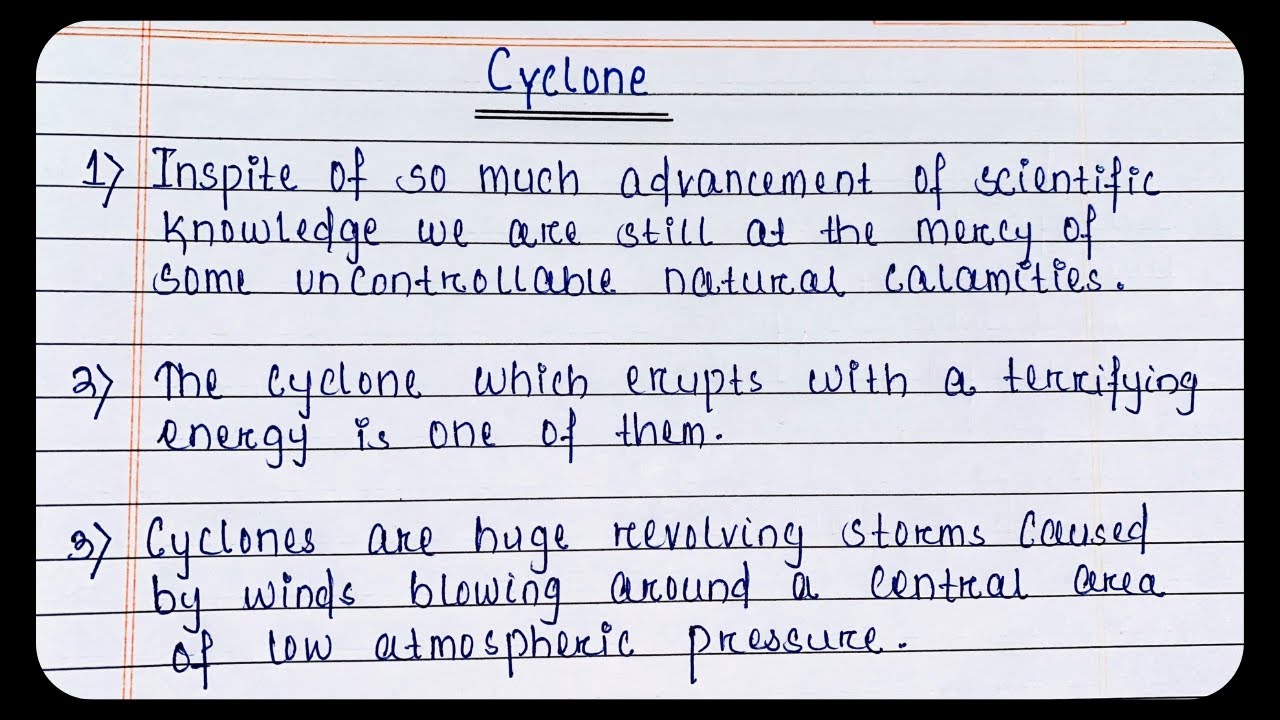 Cyclone
1) Inspite of so much advancement of scientific
knowledge we are still at the mercy of
some uncontrollable natural calamities.
2) The cyclone which erupts with a terrifying
energy is one of them.
3) Cyclones are huge revolving storms caused
by winds blowing around a central area
of low atmospheric pressure.